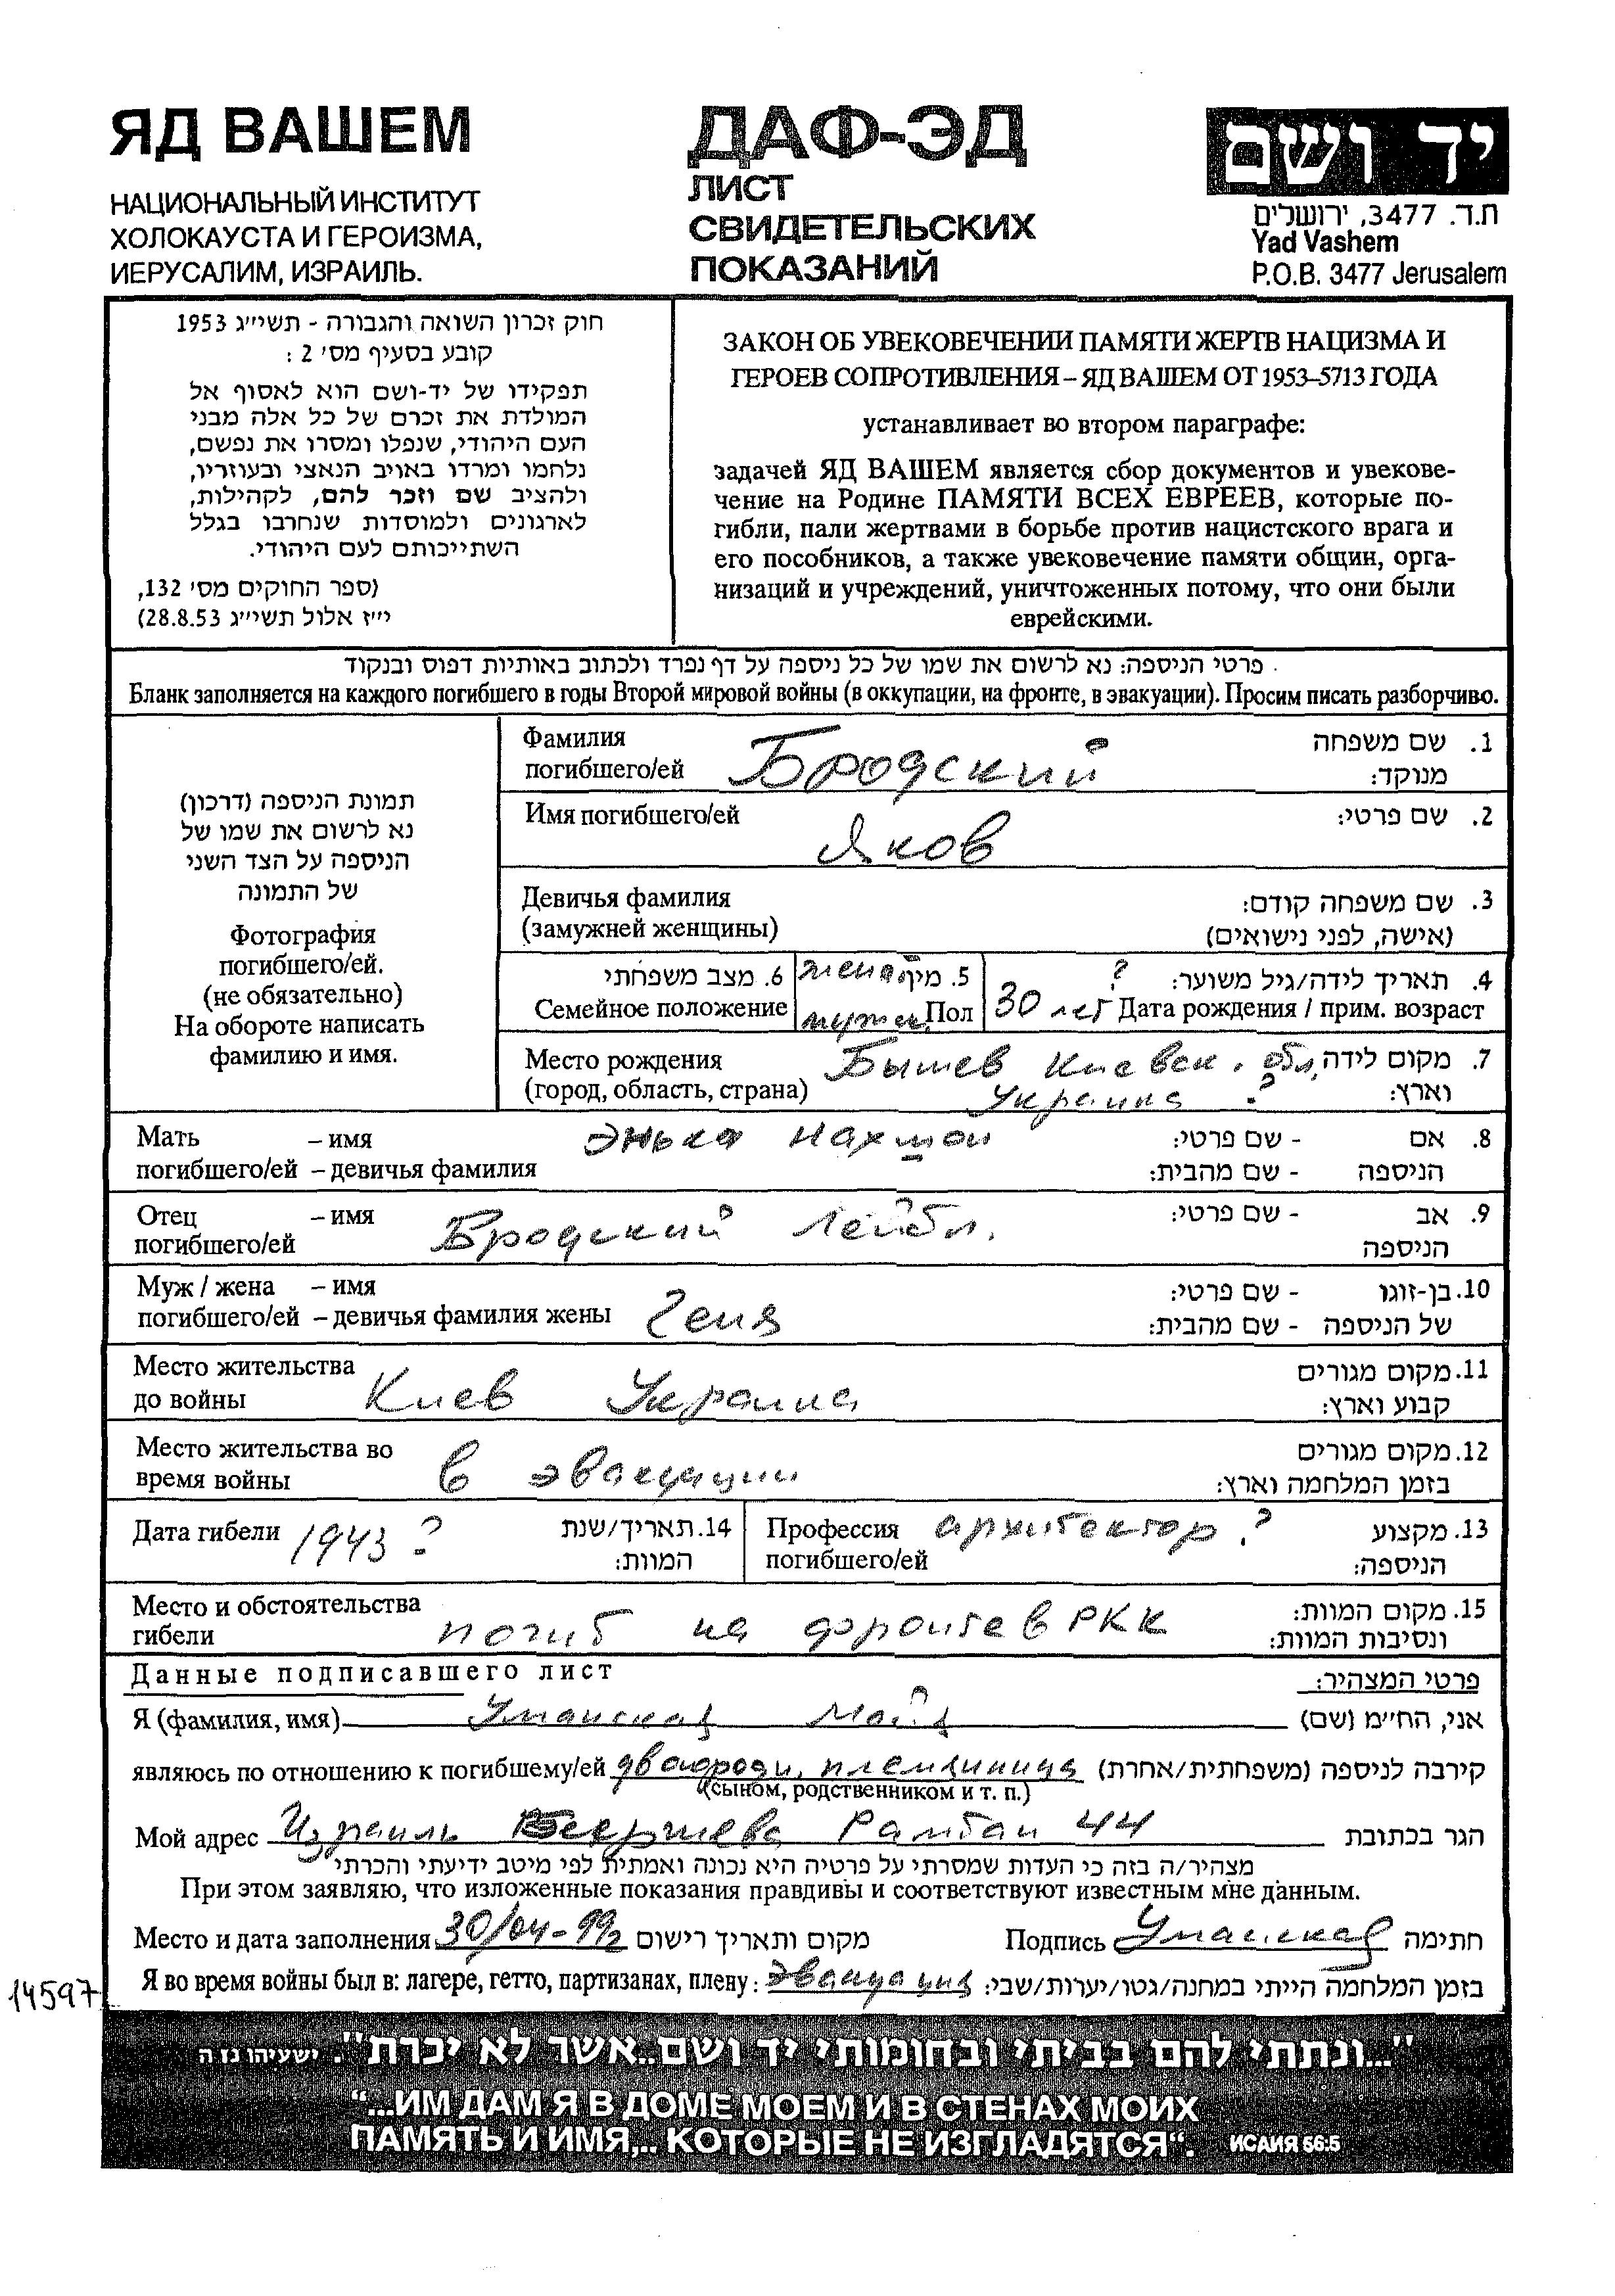 ЯД ВАШЕМ
НАЦИОНАЛЬНЫЙ ИНСТИТУТ
ХОЛОКАУСТА И ГЕРОИЗМА,
ИЕРУСАЛИМ, ИЗРАИЛЬ.
ДАФ-ЭД
ЛИСТ
СВИДЕТЕЛЬСКИХ
ПОКАЗАНИЙ
יד ושם
ת.ד. 3477, ירושלים
Yad Vashem
P.O.B. 3477 Jerusalem
חוק זכרון השואה והגבורה - תשי״ג 1953
קובע בסעיף מס׳ 2 :
תפקידו של יד-ושם הוא לאסוף אל
המולדת את זכרם של כל אלה מבני
העם היהודי, שנפלו ומסרו את נפשם,
נלחמו ומרדו באויב הנאצי ובעוזריו,
ולהציב שם וזכר להם, לקהילות,
לארגונים ולמוסדות שנחרבו בגלל
השתייכותם לעם היהודי.
(ספר החוקים מס׳ 132,
י״ז אלול תשי״ג 28.8.53)
ЗАКОН ОБ УВЕКОВЕЧЕНИИ ПАМЯТИ ЖЕРТВ НАЦИЗМА И
ГЕРОЕВ СОПРОТИВЛЕНИЯ – ЯД ВАШЕМ ОТ 1953–5713 ГОДА
устанавливает во втором параграфе:
задачей ЯД ВАШЕМ является сбор документов и увекове-
чение на Родине ПАМЯТИ ВСЕХ ЕВРЕЕВ, которые по-
гибли, пали жертвами в борьбе против нацистского врага и
его пособников, а также увековечение памяти общин, орга-
низаций и учреждений, уничтоженных потому, что они были
еврейскими.
פרטי הניספה: נא לרשום את שמו של כל ניספה על דף נפרד ולכתוב באותיות דפוס ובנקוד
Бланк заполняется на каждого погибшего в годы Второй мировой войны (в оккупации, на фронте, в эвакуации). Просим писать разборчиво.
תמונת הניספה (דרכון)
נא לרשום את שמו של
הניספה על הצד השני
של התמונה
Фотография
погибшего/ей.
(не обязательно)
На обороте написать
фамилию и имя.
Фамилия
погибшего/ей Бродский
1. שם משפחה
מנוקד:
Имя погибшего/ей Яков
2. שם פרטי:
Девичья фамилия
(замужней женщины)
3. שם משפחה קודם:
(אישה, לפני נישואים)
6. מצב משפחתי
Семейное положение
5. מין
муж. Пол
4. תאריך לידה/גיל משוער: ?
30 лет Дата рождения / прим. возраст
Место рождения Бышев Киевск. обл,
(город, область, страна) Украина ?
7. מקום לידה
וארץ:
Мать – имя Энька Нахман
погибшего/ей – девичья фамилия
8. אם - שם פרטי:
הניספה - שם מהבית:
Отец – имя
погибшего/ей Бродский Лейбл.
9. אב - שם פרטי:
הניספה
Муж / жена – имя
погибшего/ей – девичья фамилия жены Геня
10. בן-זוגו - שם פרטי:
של הניספה - שם מהבית:
Место жительства
до войны Киев Украина
11. מקום מגורים
קבוע וארץ:
Место жительства во
время войны в эвакуации
12. מקום מגורים
בזמן המלחמה וארץ:
Дата гибели 1943 ?
14. תאריך/שנת
המוות:
Профессия архитектор ?
погибшего/ей
13. מקצוע
הניספה:
Место и обстоятельства
гибели погиб на фронте в РКК
15. מקום המוות:
ונסיבות המוות:
Данные подписавшего лист
פרטי המצהיר:
Я (фамилия, имя) Уманская Майя אני, הח״מ (שם)
являюсь по отношению к погибшему/ей двоюродн. племянница קירבה לניספה (משפחתית/אחרת)
(сыном, родственником и т. п.)
Мой адрес Израиль Беершева Рамбам 44 הגר בכתובת
מצהיר/ה בזה כי העדות שמסרתי על פרטיה היא נכונה ואמתית לפי מיטב ידיעתי והכרתי
При этом заявляю, что изложенные показания правдивы и соответствуют известным мне данным.
Место и дата заполнения 30/04-99г מקום ותאריך רישום Подпись Уманская חתימה
Я во время войны был в: лагере, гетто, партизанах, плену: Эвакуация בזמן המלחמה הייתי במחנה/גטו/יערות/שבי:
14597
"...ונתתי להם בביתי ובחומותי יד ושם...אשר לא יכרת". ישעיהו נו ה
“...ИМ ДАМ Я В ДОМЕ МОЕМ И В СТЕНАХ МОИХ
ПАМЯТЬ И ИМЯ... КОТОРЫЕ НЕ ИЗГЛАДЯТСЯ“. ИСАИЯ 56:5